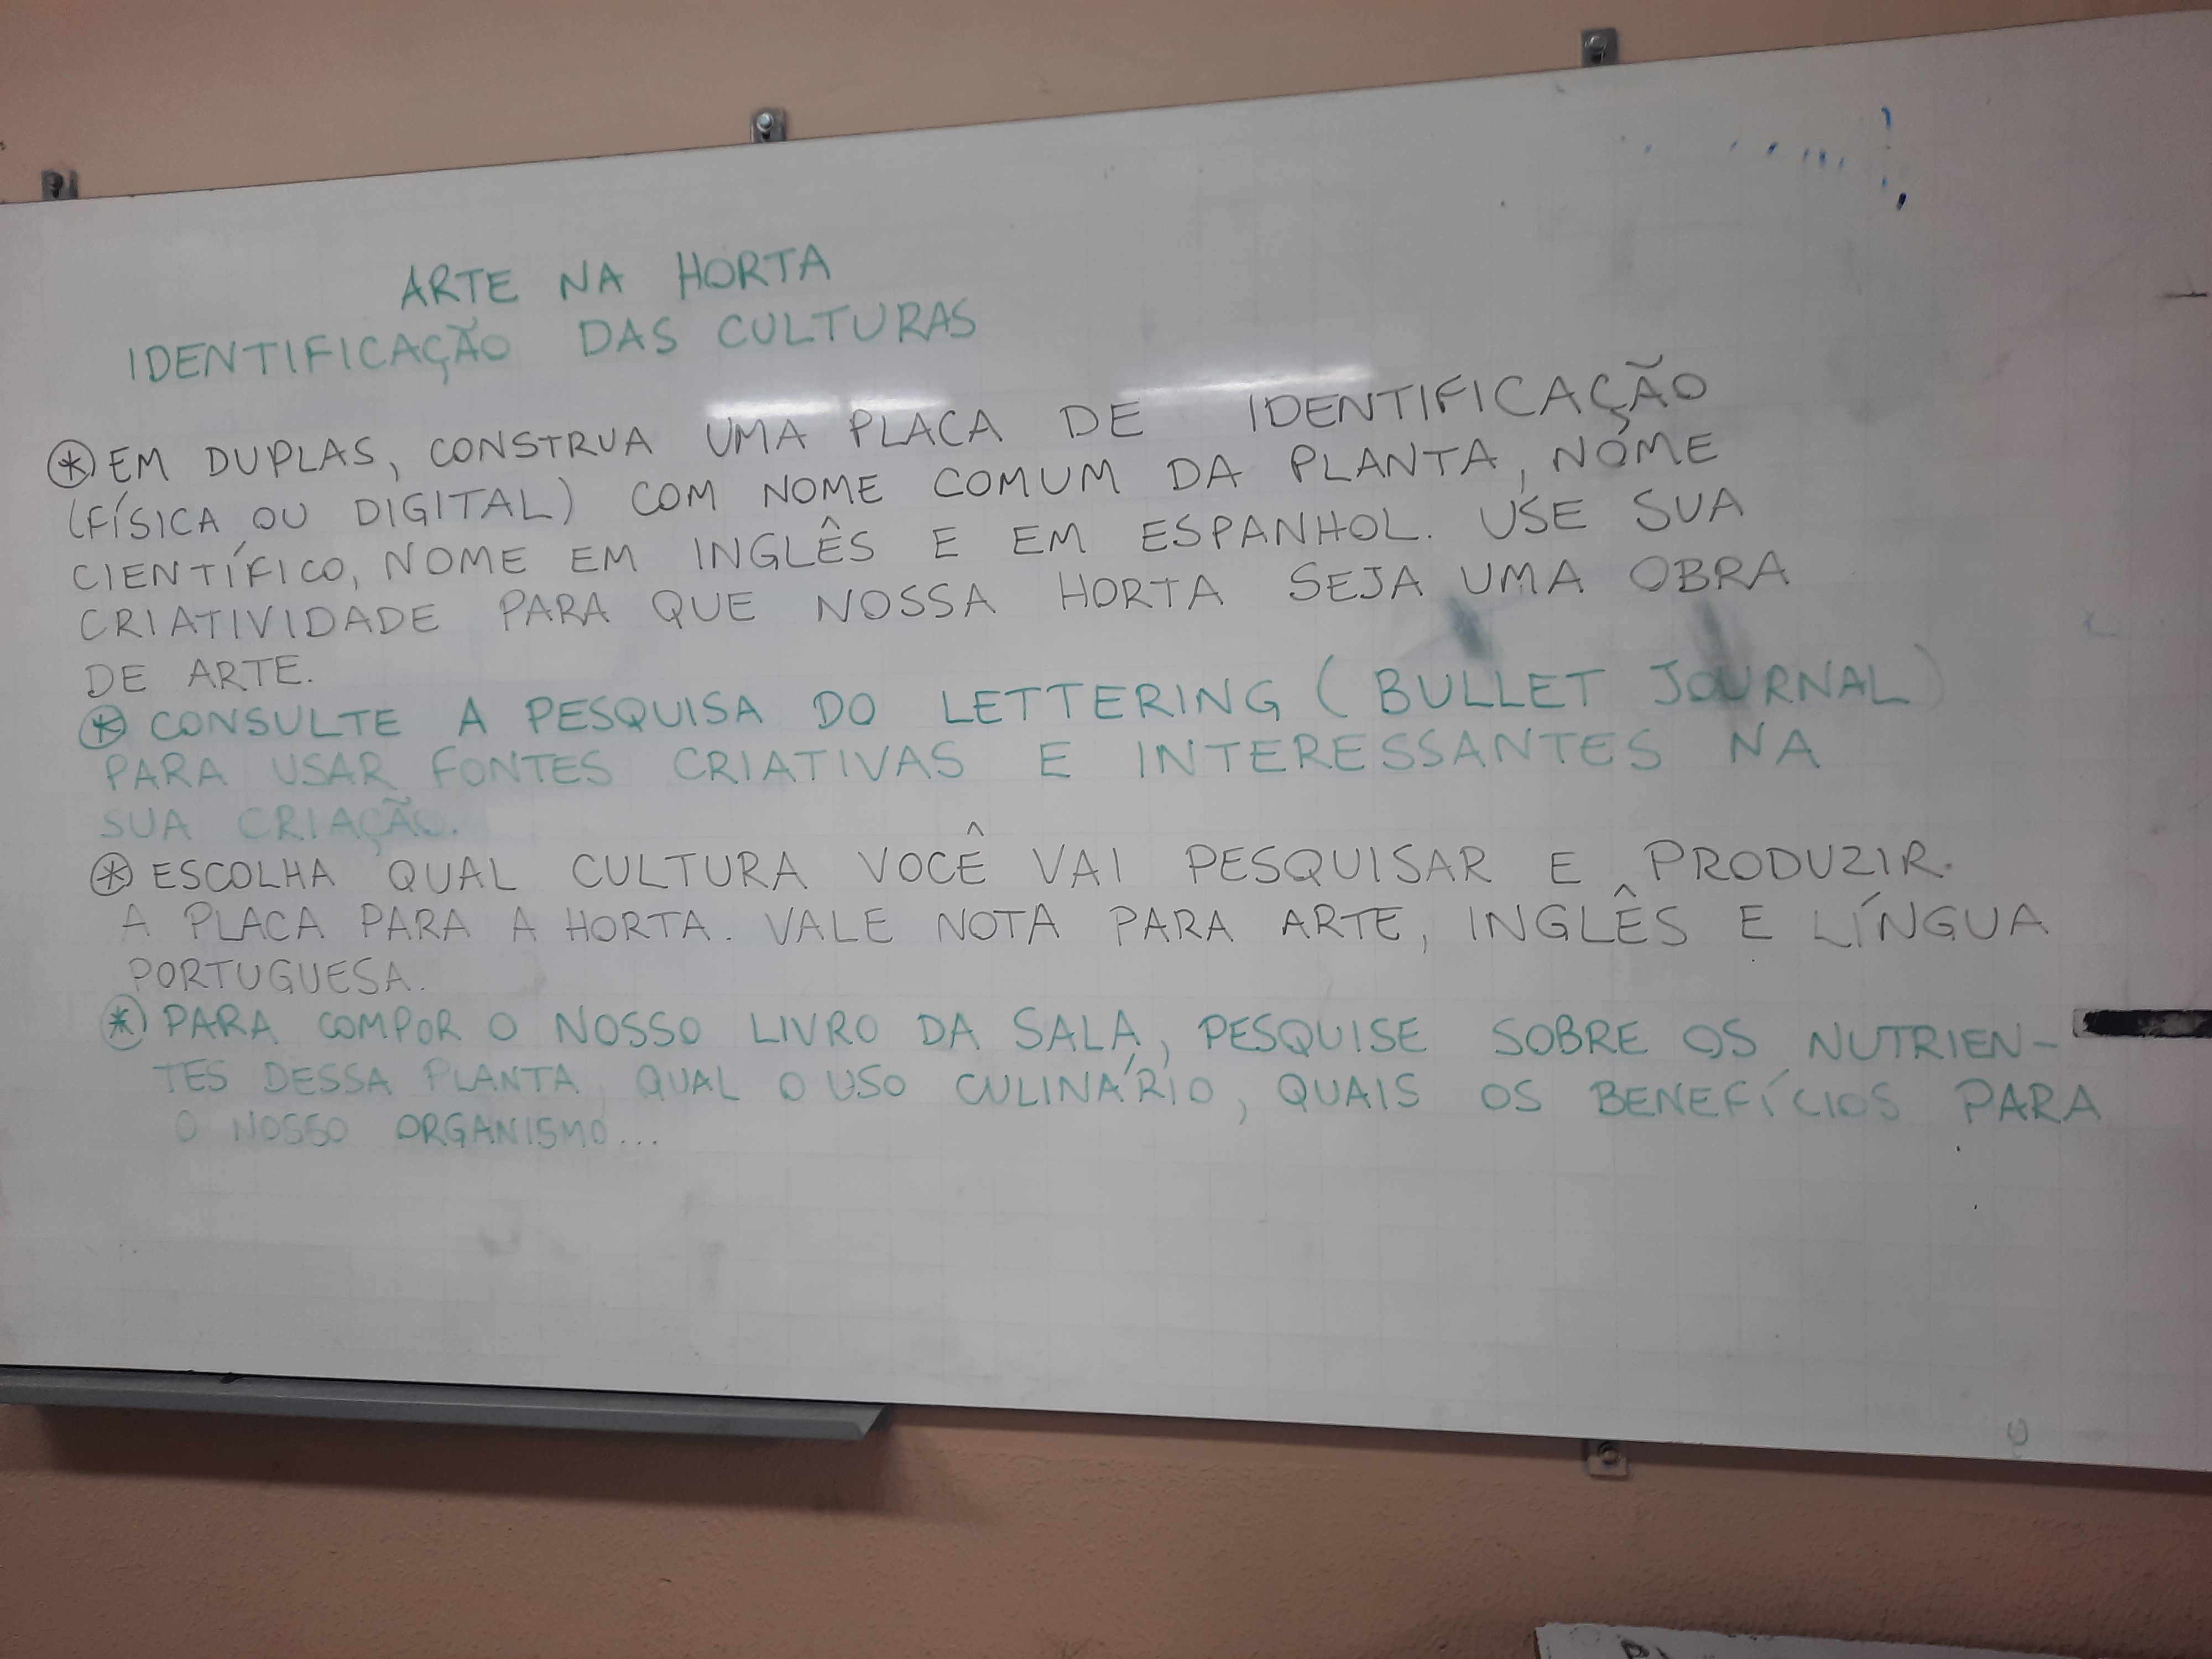 ARTE NA HORTA
IDENTIFICAÇÃO DAS CULTURAS
⊛ EM DUPLAS, CONSTRUA UMA PLACA DE IDENTIFICAÇÃO
(FÍSICA OU DIGITAL) COM NOME COMUM DA PLANTA, NOME
CIENTÍFICO, NOME EM INGLÊS E EM ESPANHOL. USE SUA
CRIATIVIDADE PARA QUE NOSSA HORTA SEJA UMA OBRA
DE ARTE.
⊛ CONSULTE A PESQUISA DO LETTERING (BULLET JOURNAL)
PARA USAR FONTES CRIATIVAS E INTERESSANTES NA
SUA CRIAÇÃO.
⊛ ESCOLHA QUAL CULTURA VOCÊ VAI PESQUISAR E PRODUZIR.
A PLACA PARA A HORTA. VALE NOTA PARA ARTE, INGLÊS E LÍNGUA
PORTUGUESA.
⊛ PARA COMPOR O NOSSO LIVRO DA SALA, PESQUISE SOBRE OS NUTRIEN-
TES DESSA PLANTA, QUAL O USO CULINÁRIO, QUAIS OS BENEFÍCIOS PARA
O NOSSO ORGANISMO...